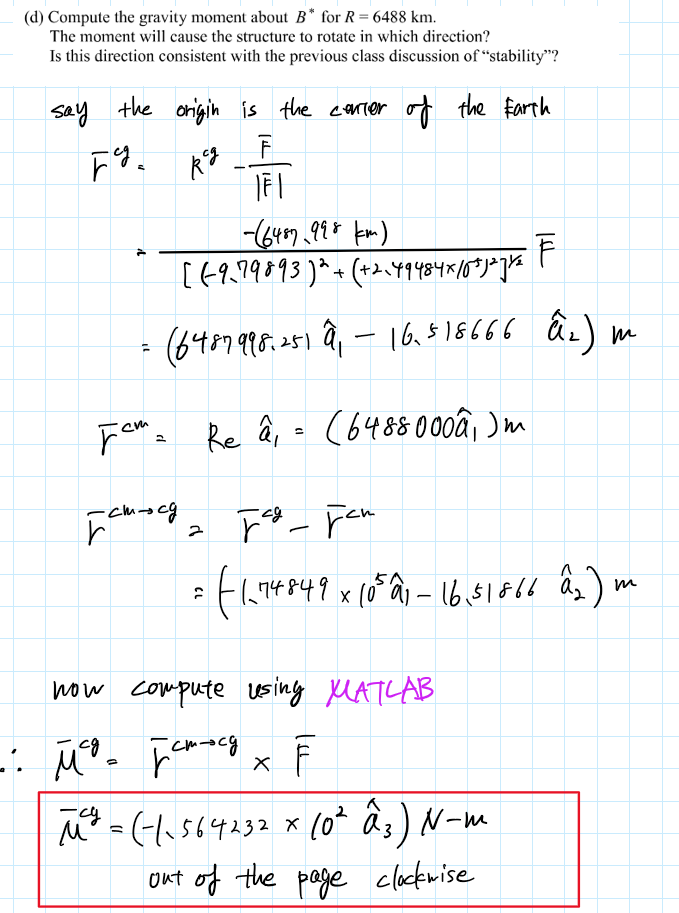 (d) Compute the gravity moment about B* for R = 6488 km.
The moment will cause the structure to rotate in which direction?
Is this direction consistent with the previous class discussion of “stability”?
say the origin is the center of the Earth
r̄^cg = R^cg - F̄ / |F̄|
= -(6487.998 km) / [(-9.79893)² + (+2.49484×10⁻⁵)²]^½ F̄
= (6487998.251 â₁ - 16.518666 â₂) m
r̄^cm = Re â₁ = (6488000 â₁) m
r̄^cm→cg = r̄^cg - r̄^cm
= (-1.74849 × 10⁵ â₁ - 16.51866 â₂) m
now compute using MATLAB
∴ M̄^cg = r̄^cm→cg × F̄
M̄^cg = (-1.564232 × 10² â₃) N-m
out of the page clockwise